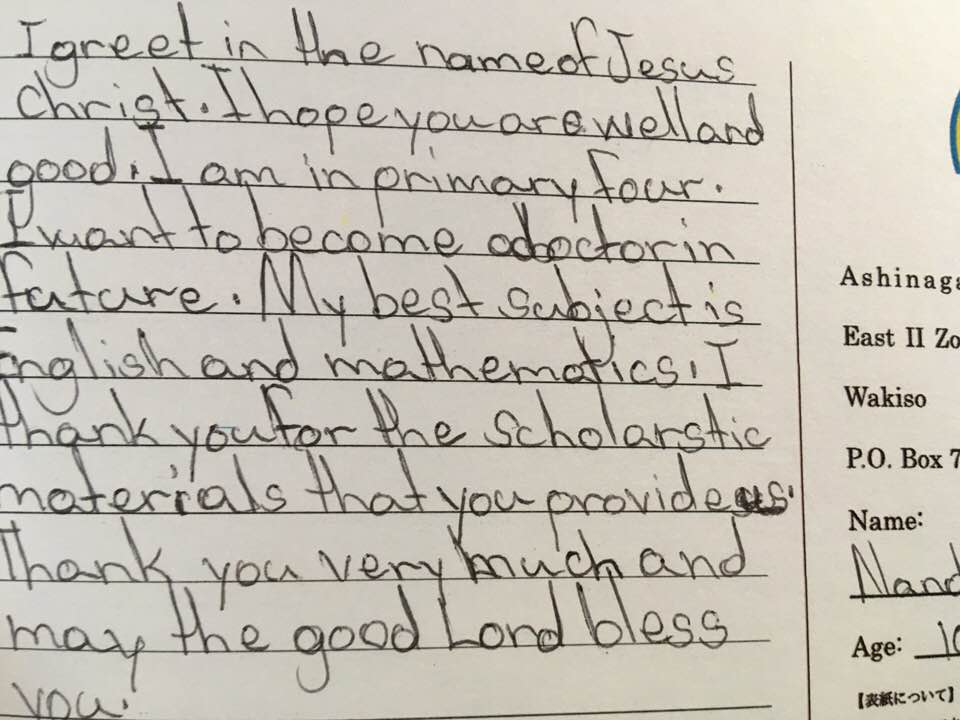 I greet in the name of Jesus
Christ. I hope you are well and
good. I am in primary four.
I want to become a doctor in
future. My best subject is
English and mathematics. I
thank you for the scholarstic
materials that you provide us.
Thank you very much and
may the good Lord bless
you.
Ashinaga
East II Zo
Wakiso
P.O. Box 7
Name:
Nand
Age: 10
【表紙について】